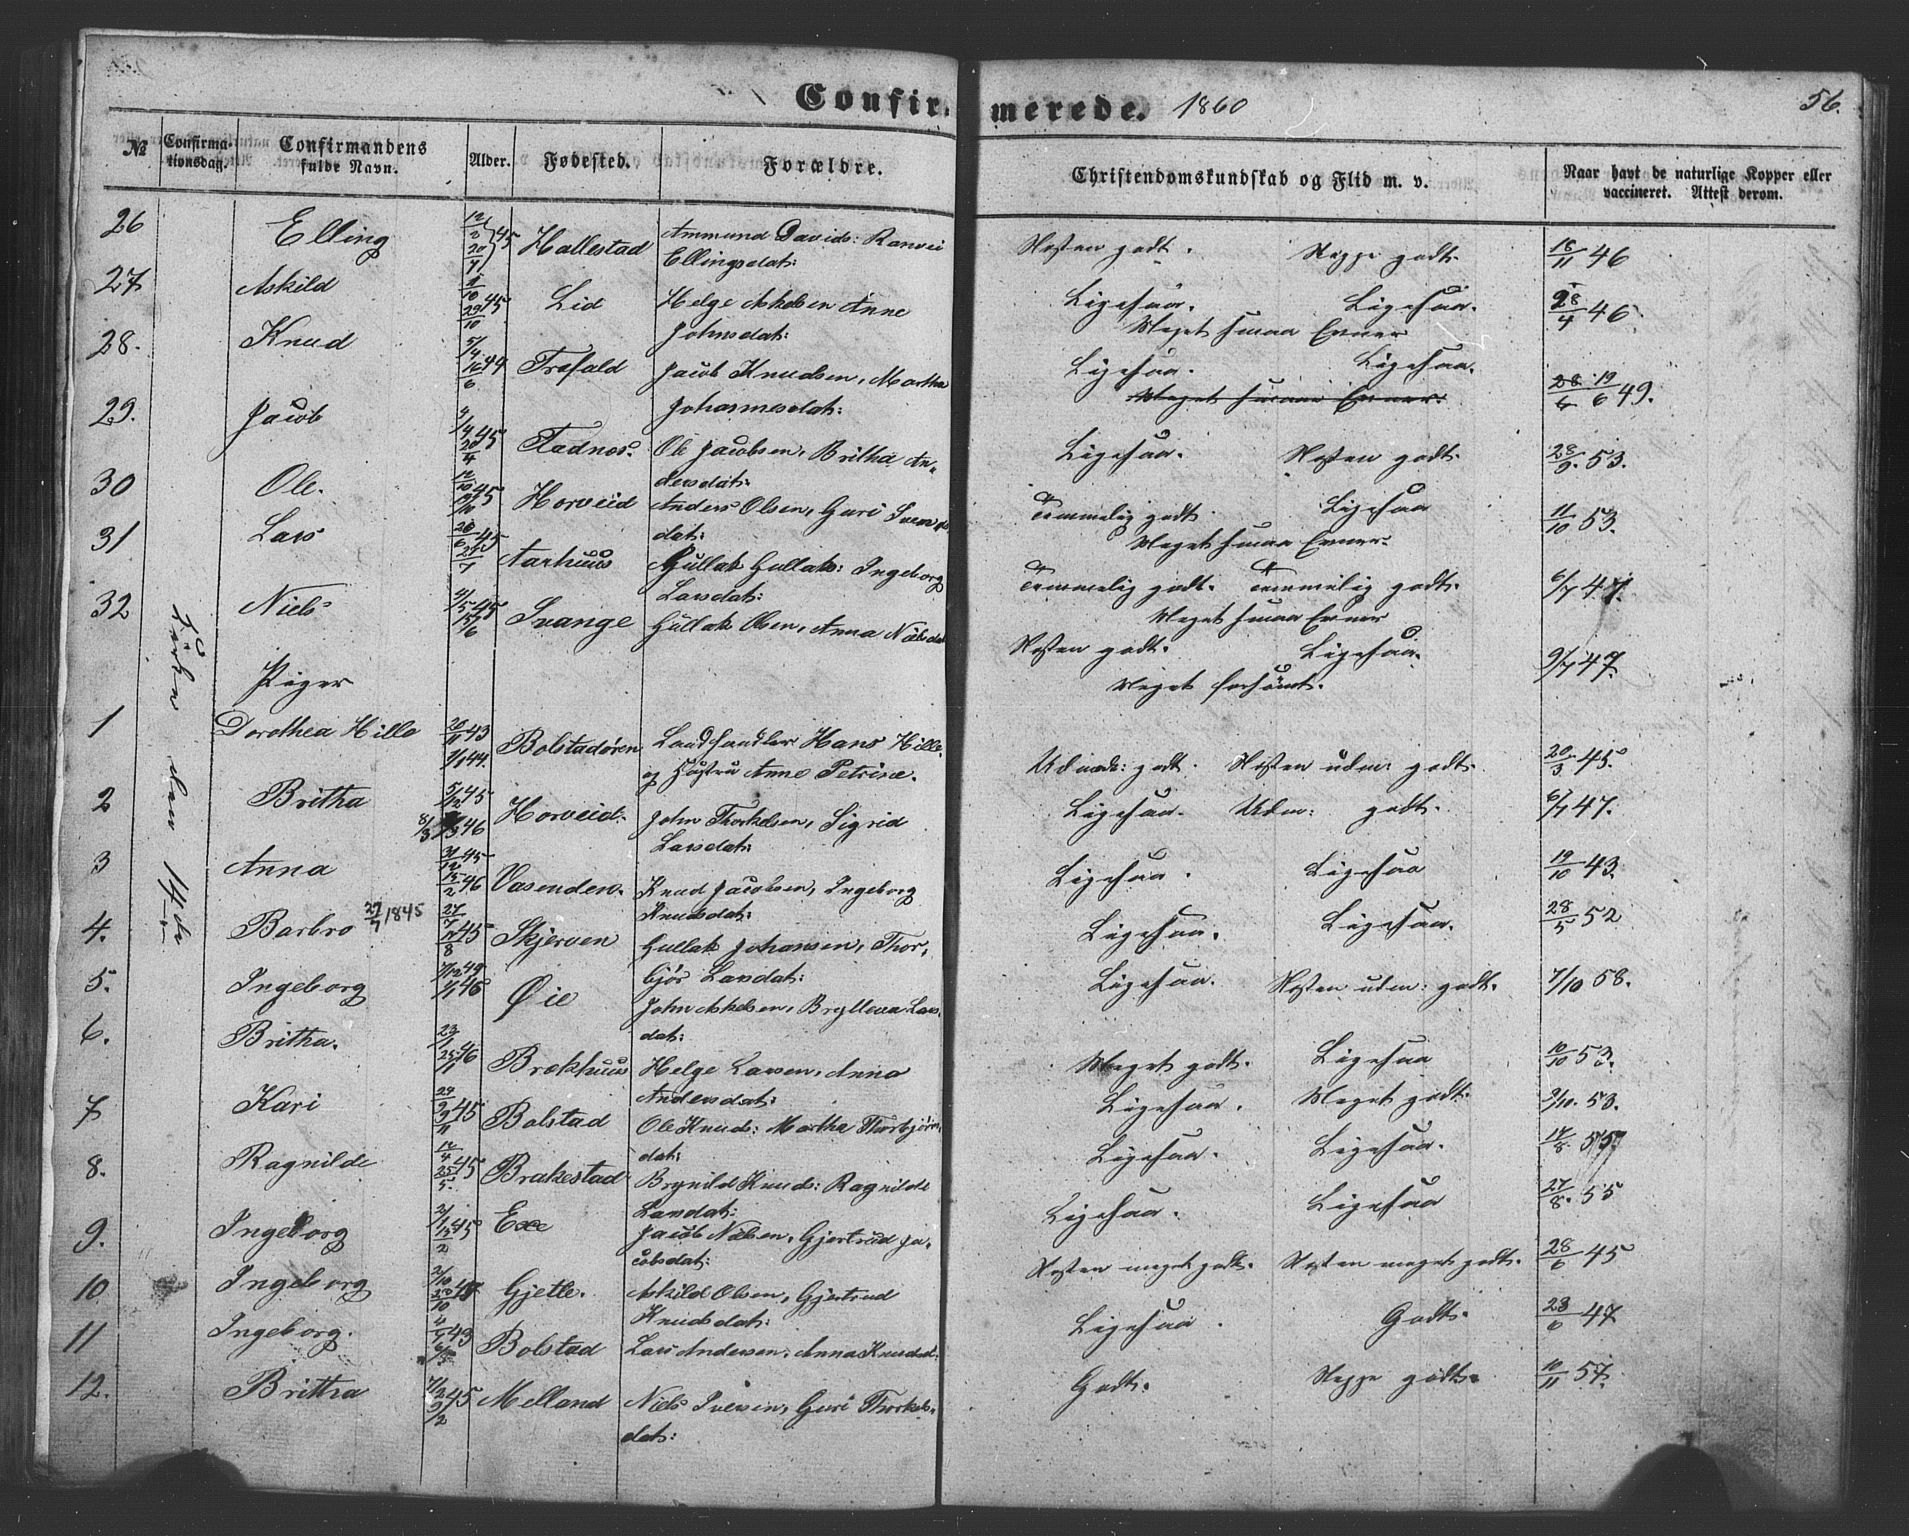 Confirmerede. 1860
56.
№ Confirmationsdag. Confirmandens fulde Navn. Alder. Fødested. Forældre. Christendomskundskab og Flid m. v. Naar havt de naturlige Kopper eller vaccineret. Attest derom.
Kirken den 14de
26 Elling 12/2 20/4 45 Hallestad Ammund Davids: Ranvei Ellingsdat: Næsten godt. Neppe godt. 18/11 46
27 Askild 29/10 45 Lid Helge Askelsen Anne Johnsdat: Ligesaa. Ligesaa. 28/4 46
Meget smaa Evner
28. Knud 5/4 16/6 44 Trefald Jacob Knudsen, Martha Johannesdat: Ligesaa. Ligesaa. 28/6 19/6 49.
Meget smaa Evner.
29. Jacob 4/4 20/4 45 Fadnes. Ole Jacobsen, Britha Andersdat: Ligesaa. Næsten godt. 28/9. 53.
30 Ole. 12/10 19/10 45 Horveid Anders Olsen, Guri Svendsdat: Temmelig godt Ligesaa 11/10 53.
Meget smaa Evner.
31 Lars 26/6 45 Aarhuus Gullak Gullaks: Ingeborg Larsdat: Temmelig godt. Temmelig godt. 6/7 47.
Meget smaa Evner
32 Niels 4/5 45 Svange Gullak Olsen, Anna Nielsdat Næsten godt. Ligesaa. 9/7 47.
Meget forsømt.
Piger
1 Dorothea Hille 20/11 43 1/1 44. Bolstadøren Landhandler Hans Hille og Hustru Anne Petrine. Udmæ: godt. Næsten udm: godt. 20/3 45.
2 Britha 5/12 45 8/3 46 Horveid. John Thorkelsen, Sigrid Larsdat: Ligesaa. Udm: godt. 6/7 47.
3 Anna 31/12 45 15/2 46 Vasenden. Knud Jacobsen, Ingeborg Knudsdat: Ligesaa. Ligesaa 19/10 43.
4. Barbro 27/7 1845 27/7 45 Skjerven Gullak Johansen, Thorbjør Larsdat: Ligesaa. Ligesaa. 28/5 52
5. Ingeborg 1/1 46 Øie John Askelsen, Brylleva Larsdat: Ligesaa. Næsten udm: godt. 7/10 58.
6. Britha. 23/1 25/1 46 Brækhuus Helge Larsen, Anna Andersdat: Meget godt. Ligesaa 10/10 53.
7 Kari 24/9 45 Bolstad Ole Knuds: Martha Thorbjørnsdat: Ligesaa. Meget godt. 9/10. 53.
8. Ragnilde 12/4 25/5. 45 Brakestad Brynild Knuds: Ragnilde Larsdat: Ligesaa. Ligesaa. 14/8. 57
9. Ingeborg 2/1 15/2 45 Exe Jacob Nielsen, Gjertrud Jacobsdat: Ligesaa. Ligesaa 27/8. 55
10 Ingeborg 2/10 23/10 Gjetle. Askild Olsen, Gjertrud Knudsdat: Næsten meget godt. Næsten meget godt. 28/6 45
11 Ingeborg. 4/4 43 Bolstad Lars Andersen, Anna Knudsd: Ligesaa. Godt. 23/6 47
12. Britha 7/2 9/2 45 Melland Niels Iversen, Guri Thorkelsdat: Godt. Neppe godt. 10/11 57.